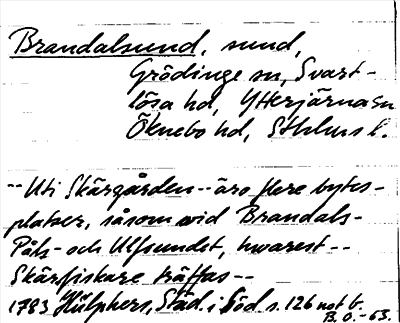 Brandalsund, sund,
Grödinge sn, Svart-
lösa hd, Ytterjärna sn
Öknebo hd, Sthlms l.
-- Uti Skärgården -- äro flere bytes-
platser, såsom wid Brandals-
Påls- och Ulfsundet, hwarest --
Skärfiskare träffas --
1783 Hülphers, Städ. i Söd s. 126 not b.
B. O. -63.